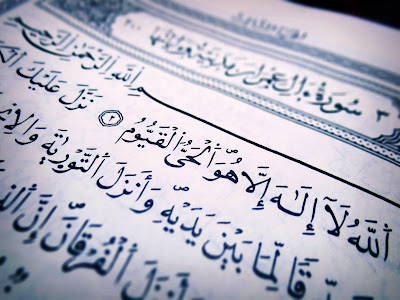 ٣ سُورَةُ آلِ عِمْرَانَ مَدَنِيَّةٌ وَآيَاتُهَا ٢٠٠
بِسْمِ ٱللَّهِ ٱلرَّحْمَٰنِ ٱلرَّحِيمِ
ٱللَّهُ لَآ إِلَٰهَ إِلَّا هُوَ ٱلْحَىُّ ٱلْقَيُّومُ ٢ نَزَّلَ عَلَيْكَ
قًا لِّمَا بَيْنَ يَدَيْهِ وَأَنزَلَ ٱلتَّوْرَىٰةَ وَٱلْإِن
وَأَنزَلَ ٱلْفُرْقَانَ إِنَّ